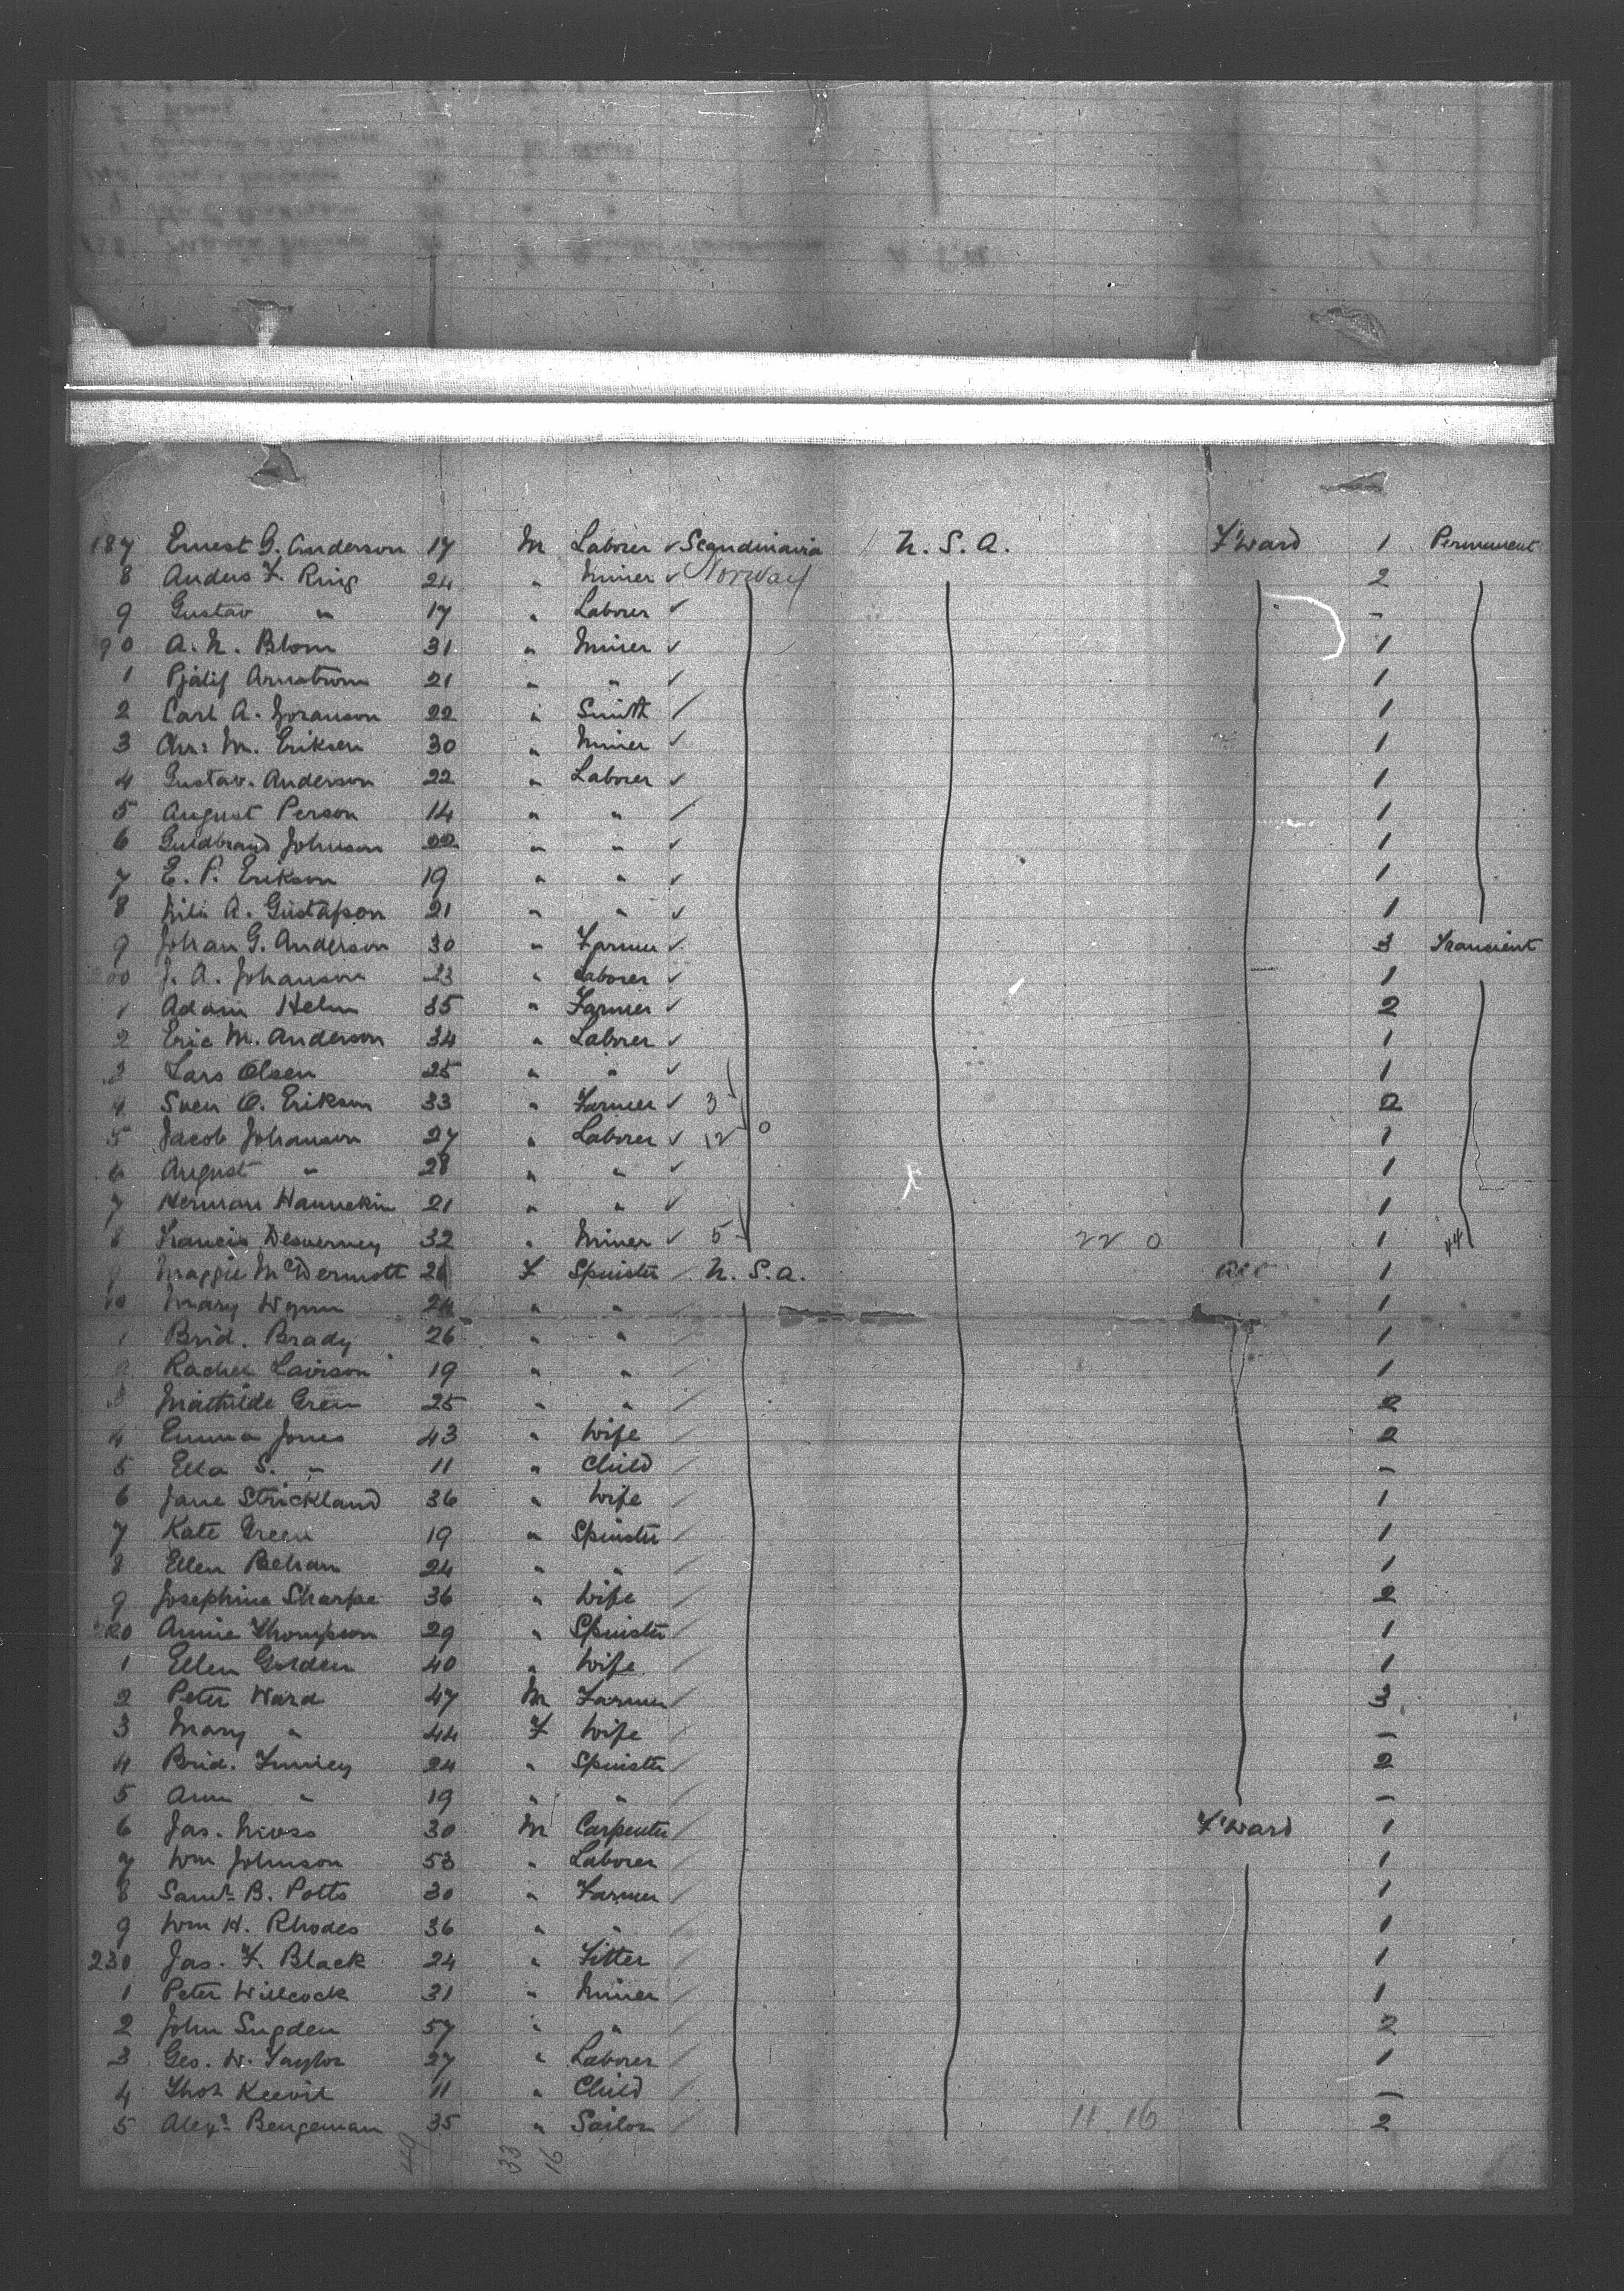 187 Ernest G. Anderson 17 M Laborer ✓ Scandinavia / U.S.A. F'ward 1 Permanent
8 Anders F. Ring 24 " Miner ✓ Norway 2
9 Gustav " 17 " Laborer ✓ -
90 A. N. Blom 31 " Miner ✓ 1
1 Arnstrom 21 " " ✓ 1
2 Carl A. 22 " Smith / 1
3 M. Eriksen 30 " Miner ✓ 1
4 Gustav. Anderson 22 " Laborer ✓ 1
5 August Person 14 " " / 1
6 Guldbrand Johnson 22 " " ✓ 1
7 E. P. Erikson 19 " " ✓ 1
8 A. Gustafson 21 " " ✓ 1
9 Johan G. Anderson 30 " Farmer ✓ 3 Transient
00 J. A. Johanson 23 " Laborer ✓ 1
1 Adam Helm 35 " Farmer ✓ 2
2 Eric M. Anderson 34 " Laborer ✓ 1
3 Lars Olsen 25 " " ✓ 1
4 Sven O. Erikson 33 " Farmer ✓ 3 2
5 Jacob Johanson 27 " Laborer ✓ 12 0 1
6 August " 28 " " ✓ 1
7 Herman 21 " " ✓ 1
8 Francis 32 " Miner ✓ 5 22 0 1 44
9 Maggie McDermott 26 F Spinster / U.S.A. 1
10 Mary Wynn 24 " " 1
1 Brid. Brady 26 " " / 1
2 Rachel 19 " " / 1
3 Mathilde Green 25 " " / 2
4 Emma Jones 43 " Wife / 2
5 Ella S. " 11 " Child / -
6 Jane Strickland 36 " Wife / 1
7 Kate Green 19 " Spinster / 1
8 Ellen 24 " " / 1
9 Josephine Sharpe 36 " Wife / 2
220 Annie Thompson 29 " Spinster / 1
1 Ellen Golden 40 " Wife / 1
2 Peter Ward 47 M Farmer / 3
3 Mary " 44 F Wife / -
4 Brid. 24 " Spinster / 2
5 Ann " 19 " " / -
6 Jas. 30 M Carpenter / F'ward 1
7 Wm Johnson 53 " Laborer / 1
8 Saml. B. Potts 30 " Farmer / 1
9 Wm H. Rhodes 36 " " / 1
230 Jas. F. Black 24 " Fitter / 1
1 Peter Willcock 31 " Miner / 1
2 John Sugden 57 " " / 2
3 Geo. W. Taylor 27 " Laborer / 1
4 Thos Keevil 11 " Child / -
5 Alexr. Bengeman 35 " Sailor / 11 16 2
49 33 16